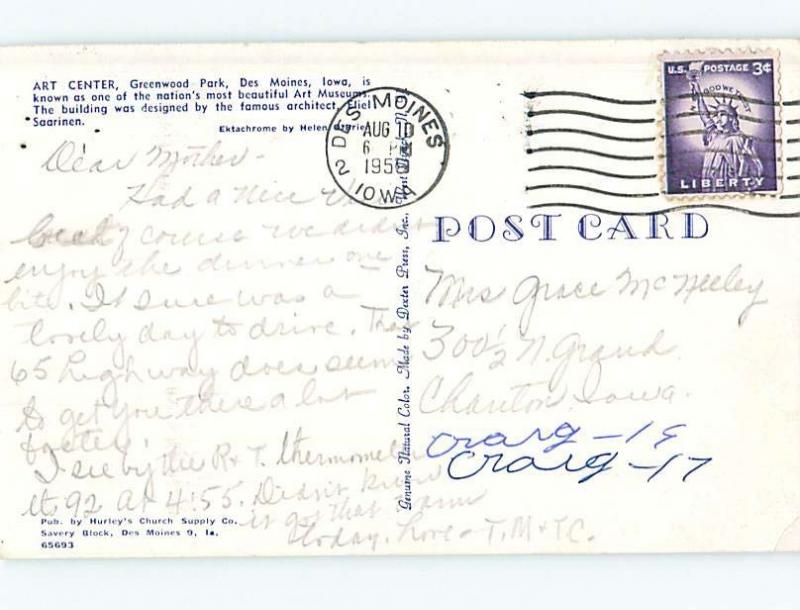 ART CENTER, Greenwood Park, Des Moines, Iowa, is
known as one of the nation's most beautiful Art Museums.
The building was designed by the famous architect, Eliel
Saarinen.
Ektachrome by Helen
DES MOINES
2
IOWA
AUG 10
6 PM
195
U.S. POSTAGE 3¢
IN GOD WE TRUST
LIBERTY
Dear Mother -
Had a nice
course we didn't
enjoy the dinner one
bite. It sure was a
lovely day to drive. That
65 highway does seem
to get you there a lot
faster.
I see by the R + T. thermometer
it 92 at 4:55. Didn't know
it got that warm
today. Love - T.M + T.C.
Pub. by Hurley's Church Supply Co.
Savery Block, Des Moines 9, Ia.
65693
Genuine Natural Color. Made by Dexter Press, Inc., West Nyack, N.
POST CARD
Mrs Grace McNeeley
300½ N. Grand
Chariton Iowa.
Craig - 19
Craig - 17